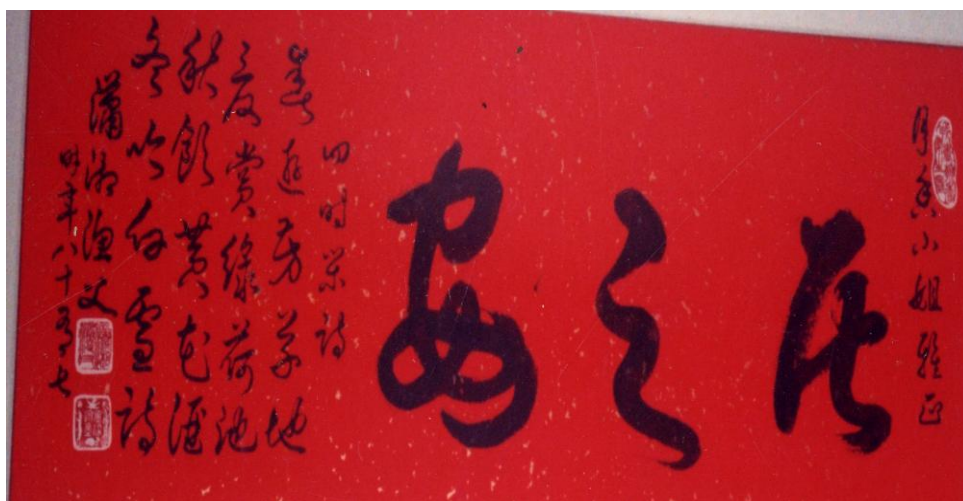 月香小姐雅正
居之安
四时樂詩
春遊芳草地
夏賞綠荷池
秋飲黃花酒
冬吟白雪詩
瀟湘漁父
時年八十有七